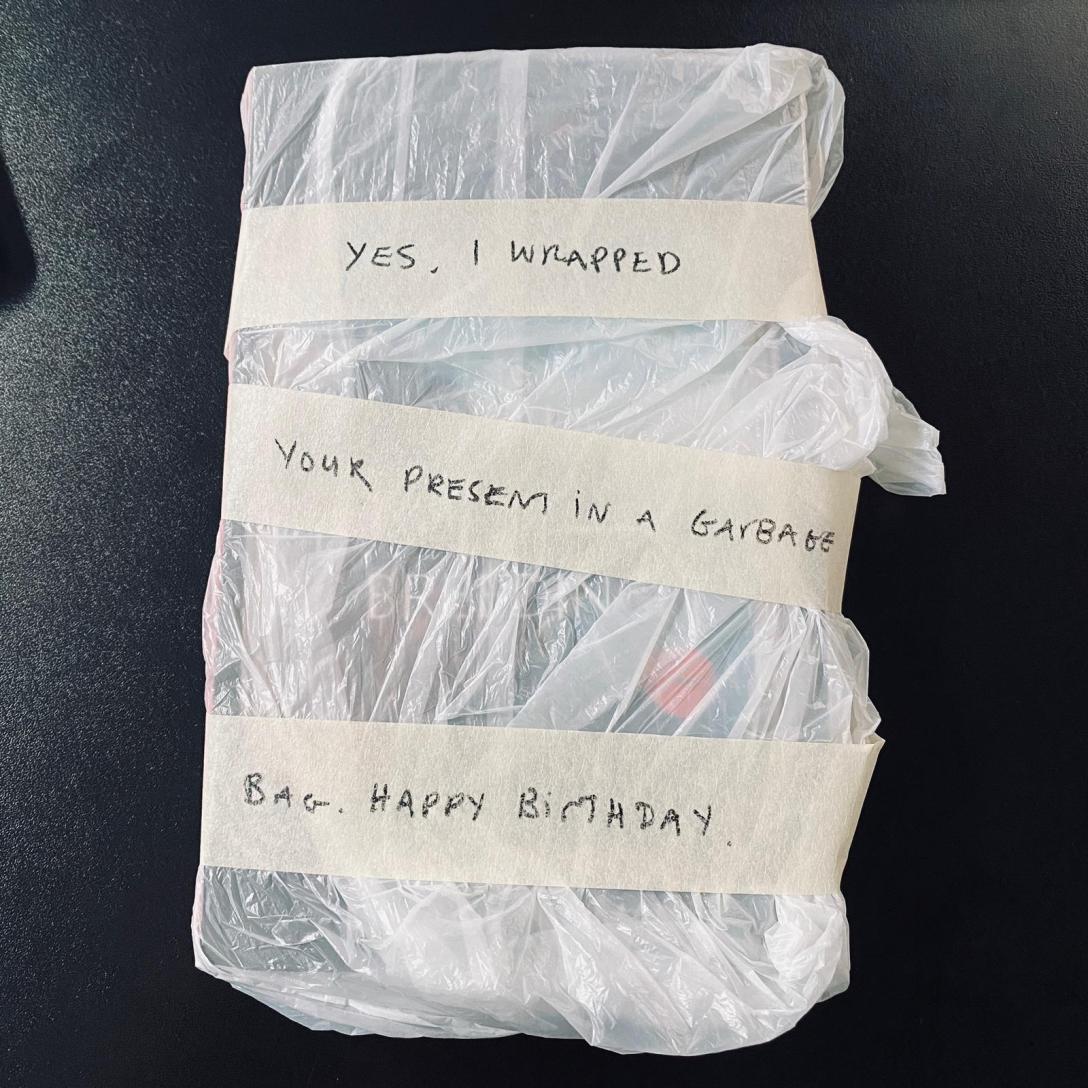 YES, I WRAPPED
YOUR PRESENT IN A GARBAGE
BAG. HAPPY BIRTHDAY.